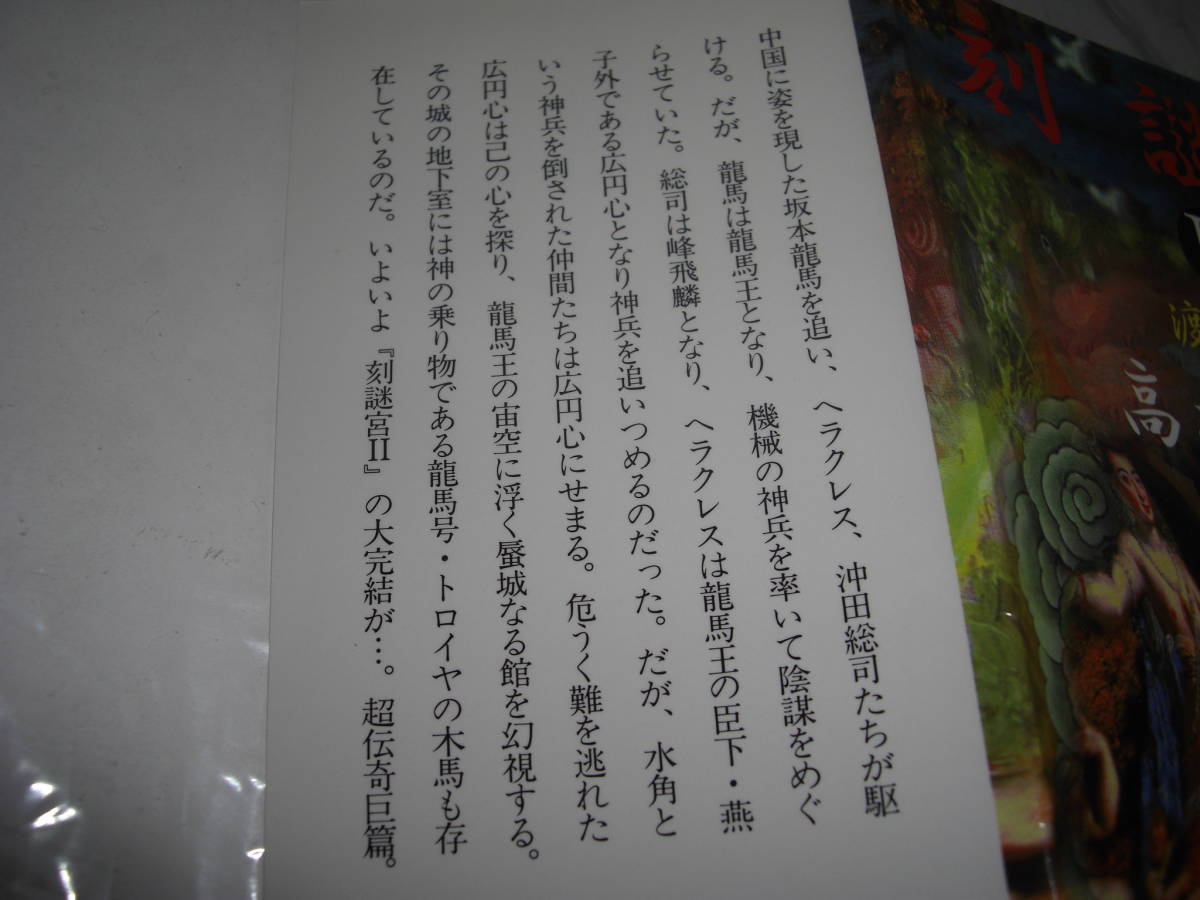 中国に姿を現した坂本龍馬を追い、ヘラクレス、沖田総司たちが駆
ける。だが、龍馬は龍馬王となり、機械の神兵を率いて陰謀をめぐ
らせていた。総司は峰飛麟となり、ヘラクレスは龍馬王の臣下・燕
子外である広円心となり神兵を追いつめるのだった。だが、水角と
いう神兵を倒された仲間たちは広円心にせまる。危うく難を逃れた
広円心は己の心を探り、龍馬王の宙空に浮く蜃城なる館を幻視する。
その城の地下室には神の乗り物である龍馬号・トロイヤの木馬も存
在しているのだ。いよいよ『刻謎宮II』の大完結が…。超伝奇巨篇。
刻謎
高